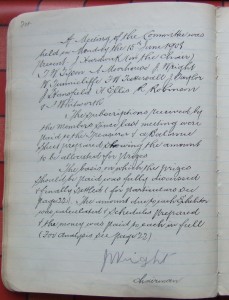 A Meeting of the Committee was
held on Monday the 15 June 1908
Present J (in the Chair)
A J Wright
W J W J Taylor
J Ellis R Robinson
J Whitworth
The subscriptions received by
the Members since last meeting were
paid to the Treasurer & a Balance
Sheet prepared showing the amount
to be allocated for Prizes
The basis on which this prizes
should be paid was fully discussed
& finally settled (for particulars see
page 221) The amount due each Exhibitor
was calculated & Schedules prepared
& the money was paid to each in full
(For analysis see page 221)
J Wright
Chairman